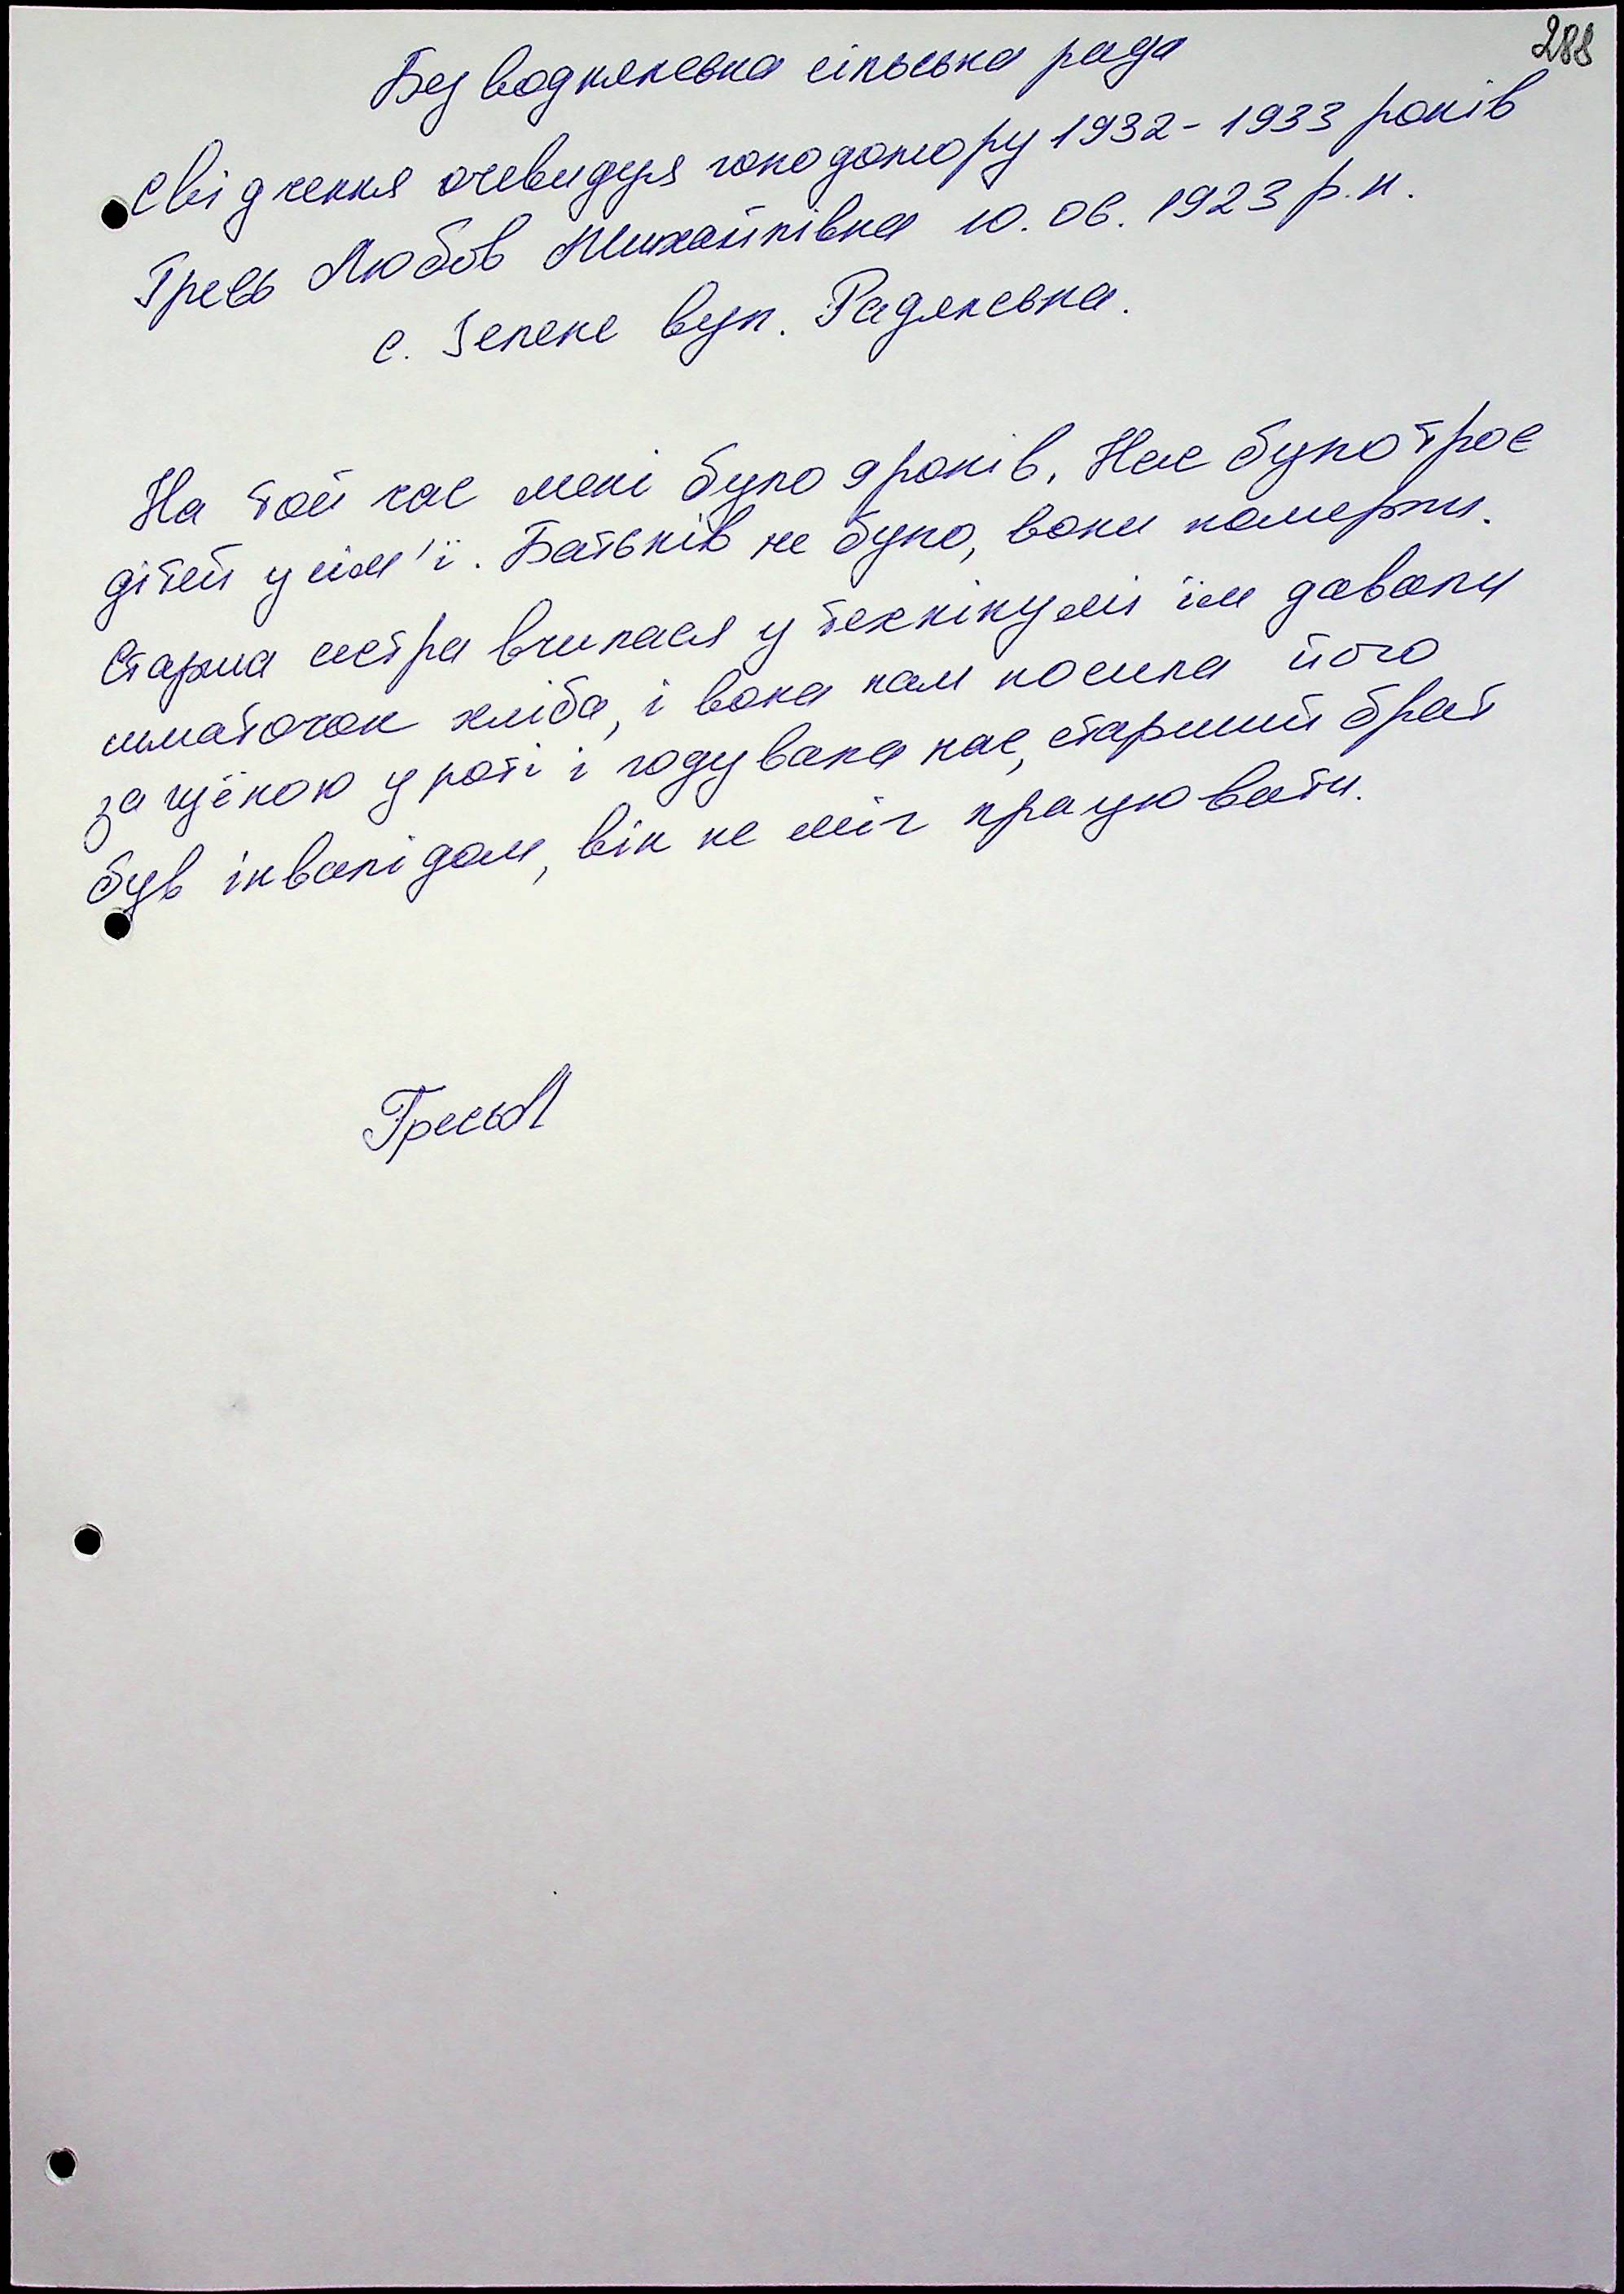 288
Безводнянська сільська рада
Свідчення очевидця голодомору 1932-1933 років
Гресь Любов Михайлівна 10.06.1923 р.н.
с. Зелене вул. Радянська.
На той час мені було 9 років. Нас було троє
дітей у сім'ї. Батьків не було, вони померли.
Старша сестра вчилася у технікумі їм давали
шматочок хліба, і вона нам носила його
за щёкою у роті і годувала нас, старший брат
був інвалідом, він не міг працювати.
Гресь Л